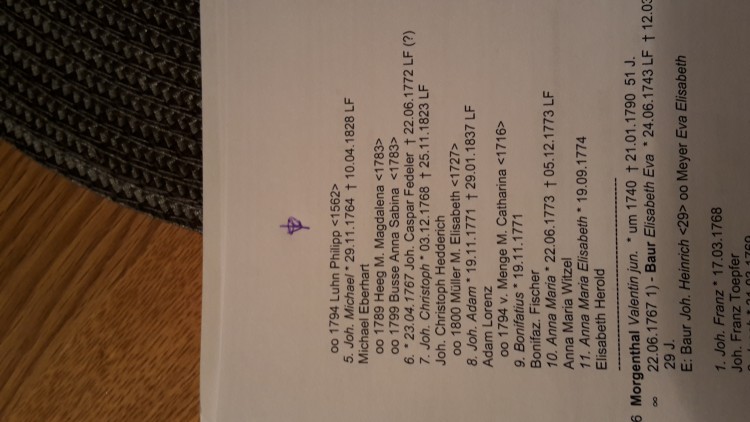 oo 1794 Luhn Philipp <1562>
5. Joh. Michael * 29.11.1764 † 10.04.1828 LF
Michael Eberhart
oo 1789 Heeg M. Magdalena <1783>
oo 1799 Busse Anna Sabina <1783>
6. * 23.04.1767 Joh. Caspar Fedeler † 22.06.1772 LF (?)
7. Joh. Christoph * 03.12.1768 † 25.11.1823 LF
Joh. Christoph Hedderich
oo 1800 Müller M. Elisabeth <1727>
8. Joh. Adam * 19.11.1771 † 29.01.1837 LF
Adam Lorenz
oo 1794 v. Menge M. Catharina <1716>
9. Bonifatius * 19.11.1771
Bonifaz. Fischer
10. Anna Maria * 22.06.1773 † 05.12.1773 LF
Anna Maria Witzel
11. Anna Maria Elisabeth * 19.09.1774
Elisabeth Herold
6 Morgenthal Valentin jun. * um 1740 † 21.01.1790 51 J.
∞ 22.06.1767 1) - Baur Elisabeth Eva * 24.06.1743 LF † 12.03
29 J.
E: Baur Joh. Heinrich <29> oo Meyer Eva Elisabeth
1. Joh. Franz * 17.03.1768
Joh. Franz Toepfer